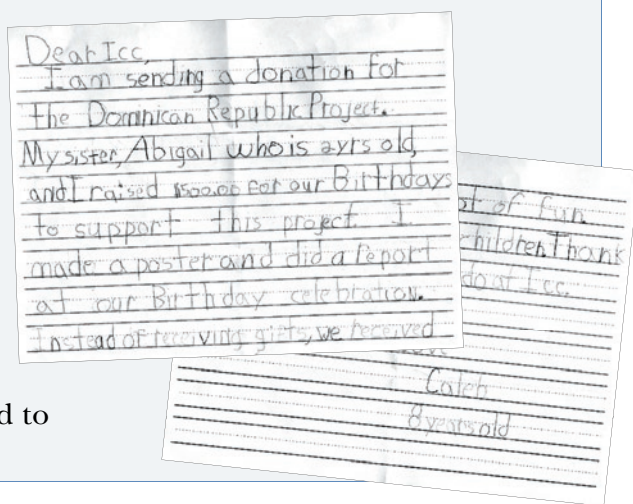 Dear Icc,
I am sending a donation for
the Dominican Republic Project.
My sister, Abigail who is 2yrs old,
and I raised $500.00 for our Birthdays
to support this project. I
made a poster and did a report
at our Birthday celebration.
Instead of receiving gifts, we received
of fun
children. Thank
do at Icc.
Caleb
8 years old
d to